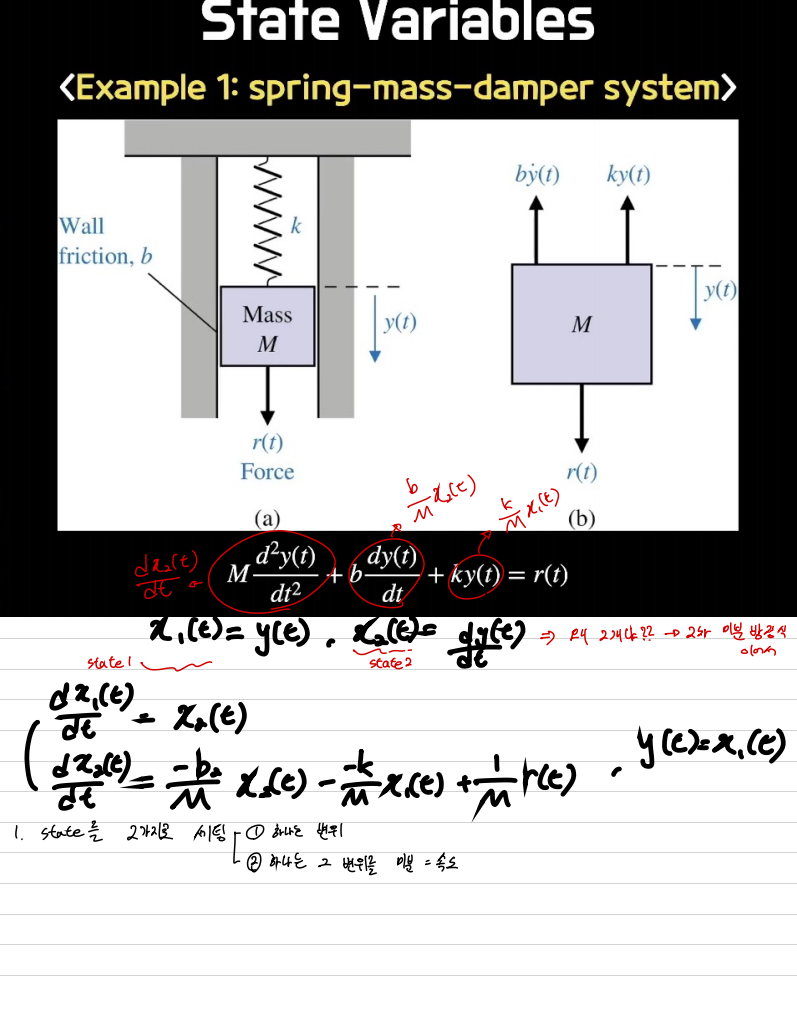 State Variables
<Example 1: spring-mass-damper system>
Wall
friction, b
k
Mass
M
y(t)
r(t)
Force
(a)
bẏ(t) ky(t)
M
y(t)
r(t)
(b)
b/M x₂(t)
k/M x₁(t)
dx₂(t)/dt
M d²y(t)/dt² + b dy(t)/dt + ky(t) = r(t)
x₁(t) = y(t) , x₂(t) = dy(t)/dt ⇒ 2개냐?? → 2차 미분 방정식
이어서
state1 state2
dx₁(t)/dt = x₂(t)
dx₂(t)/dt = -b/M x₂(t) - -k/M x₁(t) + 1/M r(t) , y(t) = x₁(t)
1. state를 2가지로 세팅 ① 하나는 변위
② 하나는 그 변위를 미분 = 속도